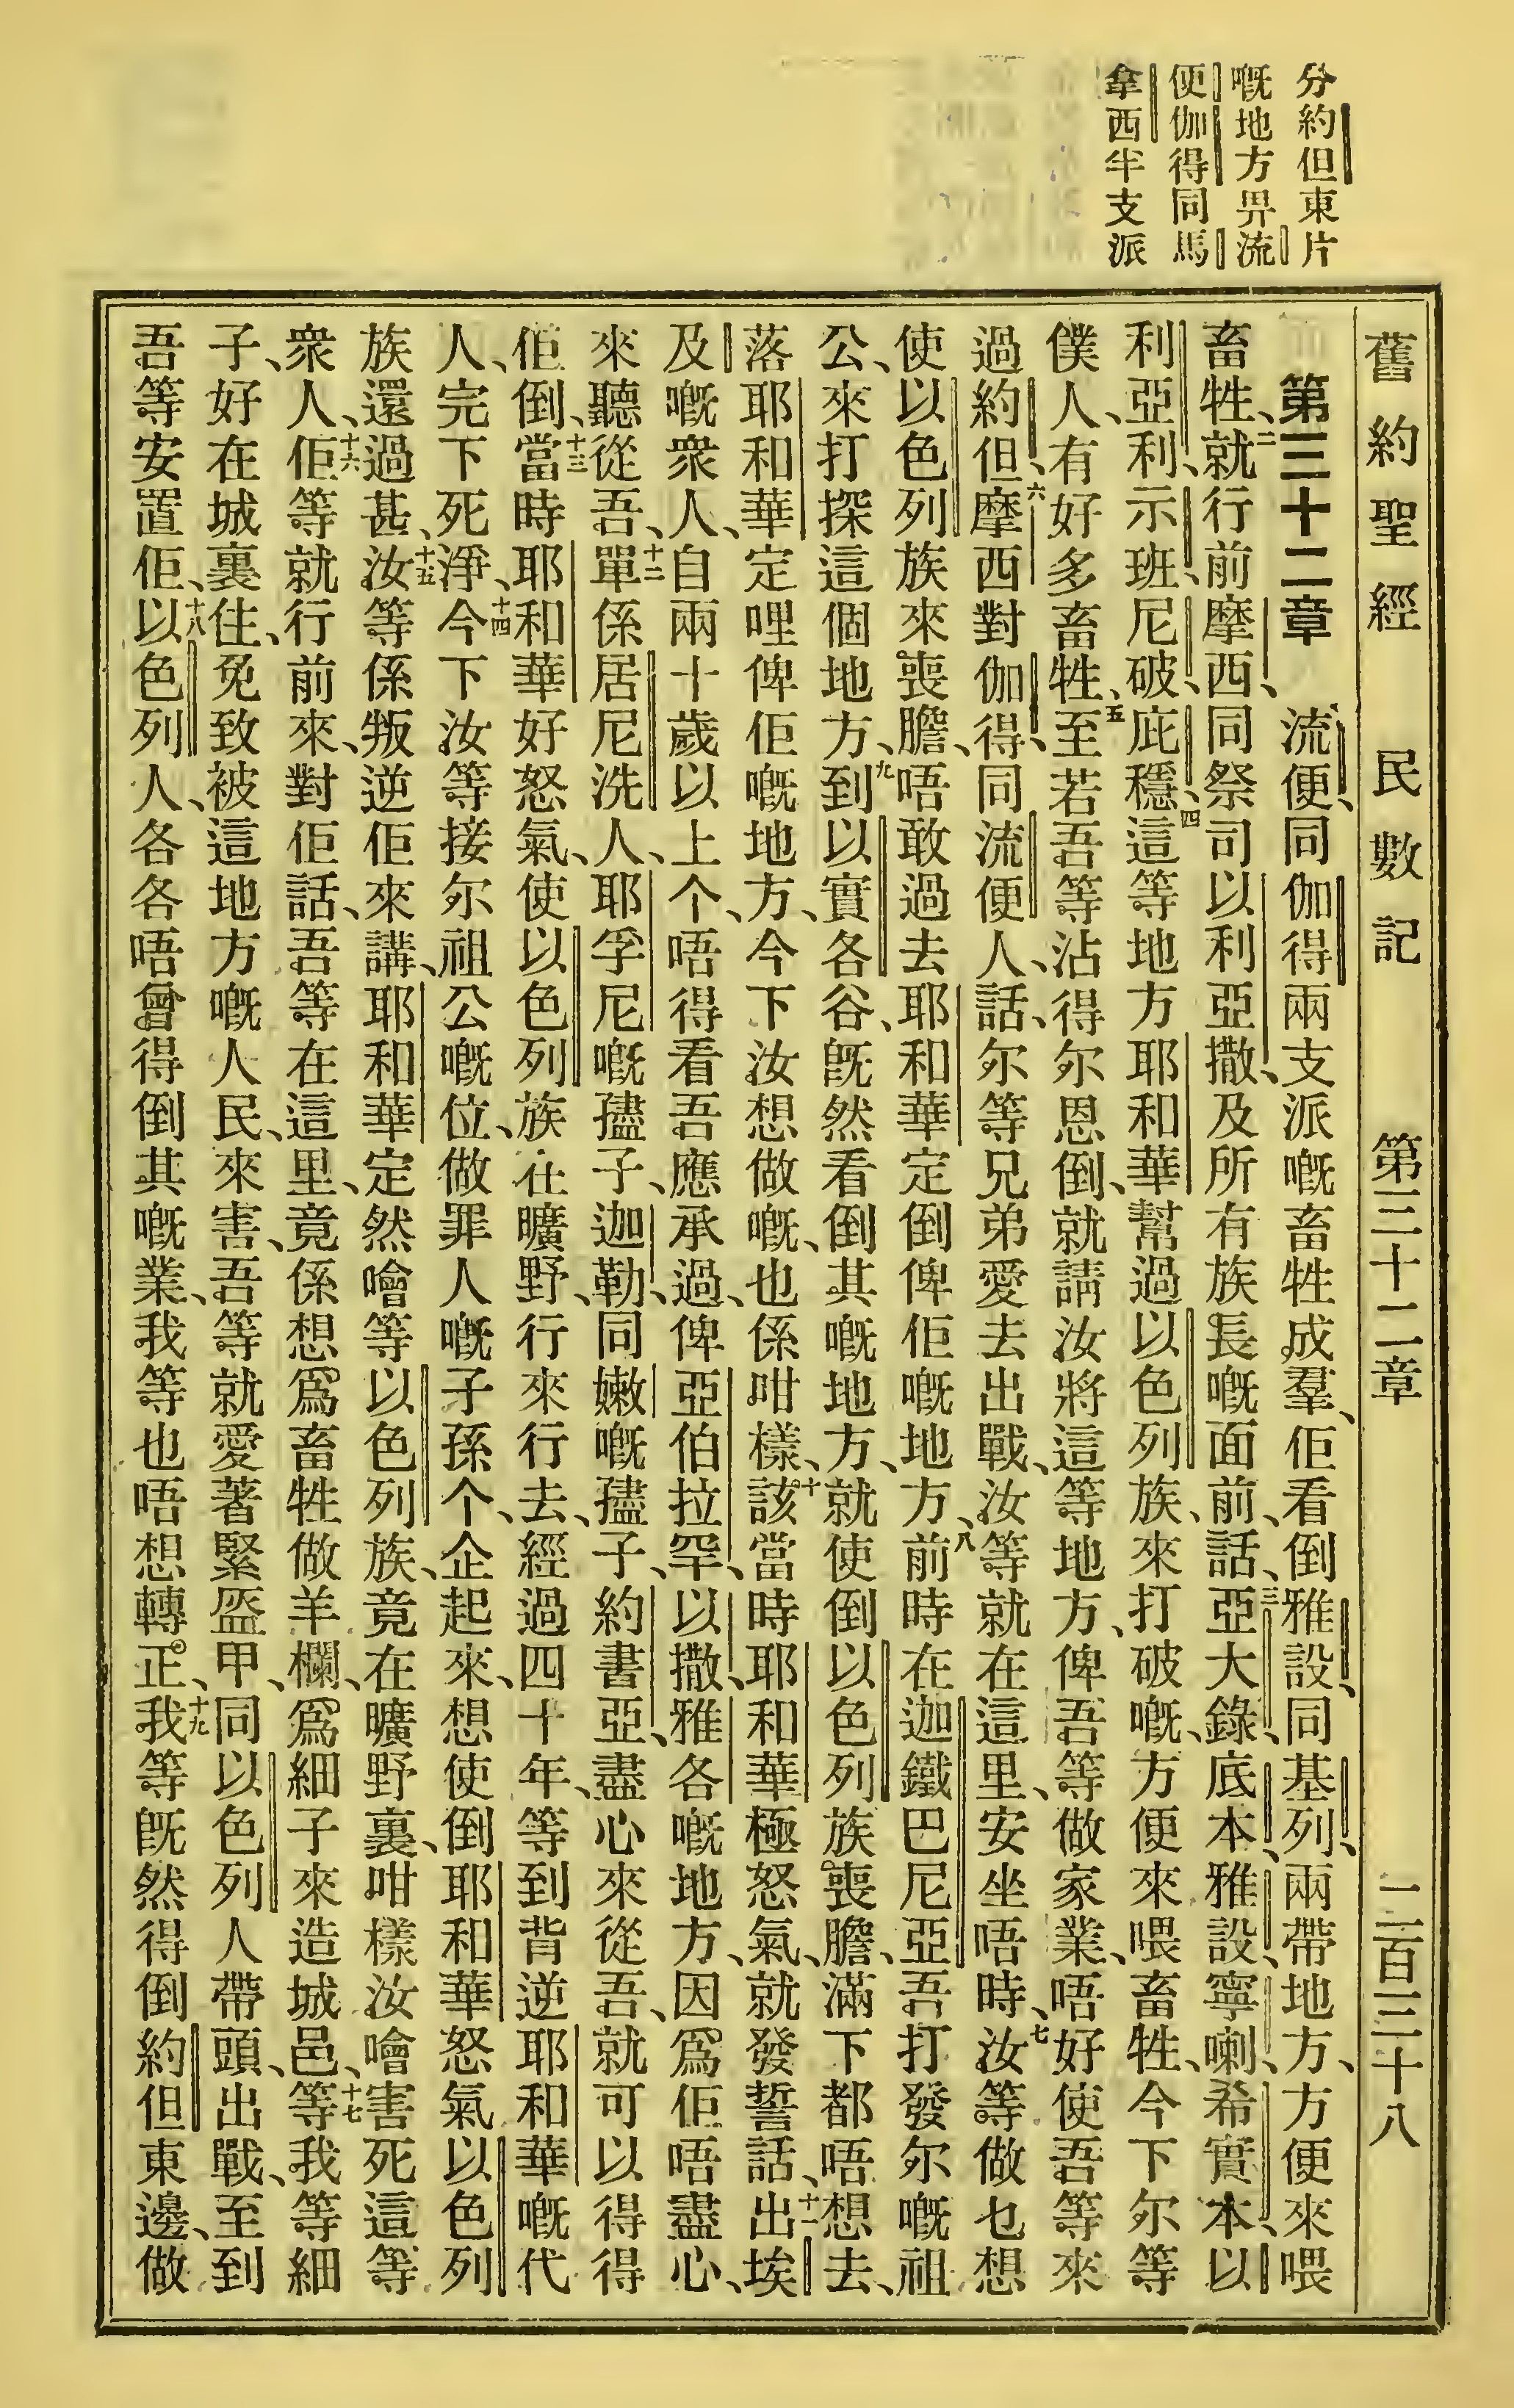 分約但東片
嘅地方畀流
便伽得同馬
拿西半支派
舊約聖經 民數記 第三十二章 二百三十八
第三十二章 流便、同伽得兩支派嘅畜牲成羣、佢看倒雅設、同基列、兩帶地方、方便來喂
畜牲、二就行前摩西、同祭司以利亞撒、及所有族長嘅面前、話、三亞大錄、底本、雅設、寧喇、希實本、以
利亞利、示班、尼破、庇穩、四這等地方耶和華幫過以色列族、來打破嘅、方便來喂畜牲、今下尔等
僕人、有好多畜牲、五至若吾等沾得尔恩倒、就請汝將這等地方、俾吾等做家業、唔好使吾等來
過約但、六摩西對伽得、同流便人、話、尔等兄弟愛去出戰、汝等就在這里、安坐唔時、七汝等做乜想
使以色列族來喪膽、唔敢過去耶和華定倒俾佢嘅地方、八前時在迦鐵巴尼亞、吾打發尔嘅祖
公、來打探這個地方、九到以實各谷、旣然看倒其嘅地方、就使倒以色列族喪膽、滿下都唔想去、
落耶和華定哩俾佢嘅地方、今下汝想做嘅、也係咁樣、十該當時耶和華極怒氣、就發誓話、十一出埃
及嘅衆人、自兩十歲以上个、唔得看吾應承過、俾亞伯拉罕、以撒、雅各嘅地方、因爲佢唔盡心、
來聽從吾、十二單係居尼洗人、耶孚尼嘅孻子、迦勒、同嫩嘅孻子、約書亞、盡心來從吾、就可以得得
佢倒、十三當時耶和華好怒氣、使以色列族在曠野、行來行去、經過四十年、等到背逆耶和華嘅代
人、完下死淨、十四今下汝等接尔祖公嘅位、做罪人嘅子孫个、企起來、想使倒耶和華怒氣以色列
族還過甚、十五汝等係叛逆佢來講、耶和華定然噲等以色列族、竟在曠野裏、咁樣汝噲害死這等
衆人、十六佢等就行前來、對佢話、吾等在這里、竟係想爲畜牲做羊欄、爲細子來造城邑、十七等我等細
子、好在城裏住、免致被這地方嘅人民、來害、吾等就愛著緊盔甲、同以色列人帶頭、出戰、至到
吾等安置佢、十八以色列人、各各唔曾得倒其嘅業、我等也唔想轉正、十九我等旣然得倒約但東邊、做